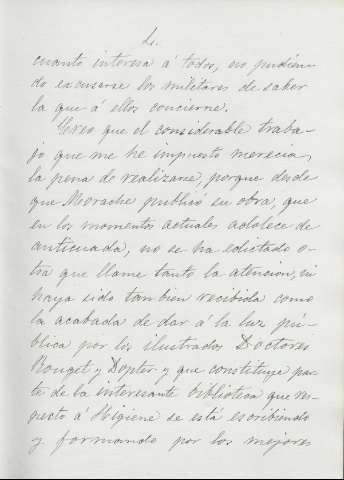 cuanto interesa á todos, no pudien-
do excusarse los militares de saber
la que á ellos concierne.
Creo que el considerable traba-
jo que me he impuesto merecia,
la pena de realizarse, porque desde
que Morache publicó su obra, que
en los momentos actuales adolece de
anticuada, no se ha editado o-
tra que llame tanto la atencion, ni
haya sido tan bien recibida como
la acabada de dar á la luz pú-
blica por los ilustrados Doctores
Rouget y Dopter y que constituye par-
te de la interesante biblioteca que res-
pecto á Higiene se está escribiendo
y formando por los mejores